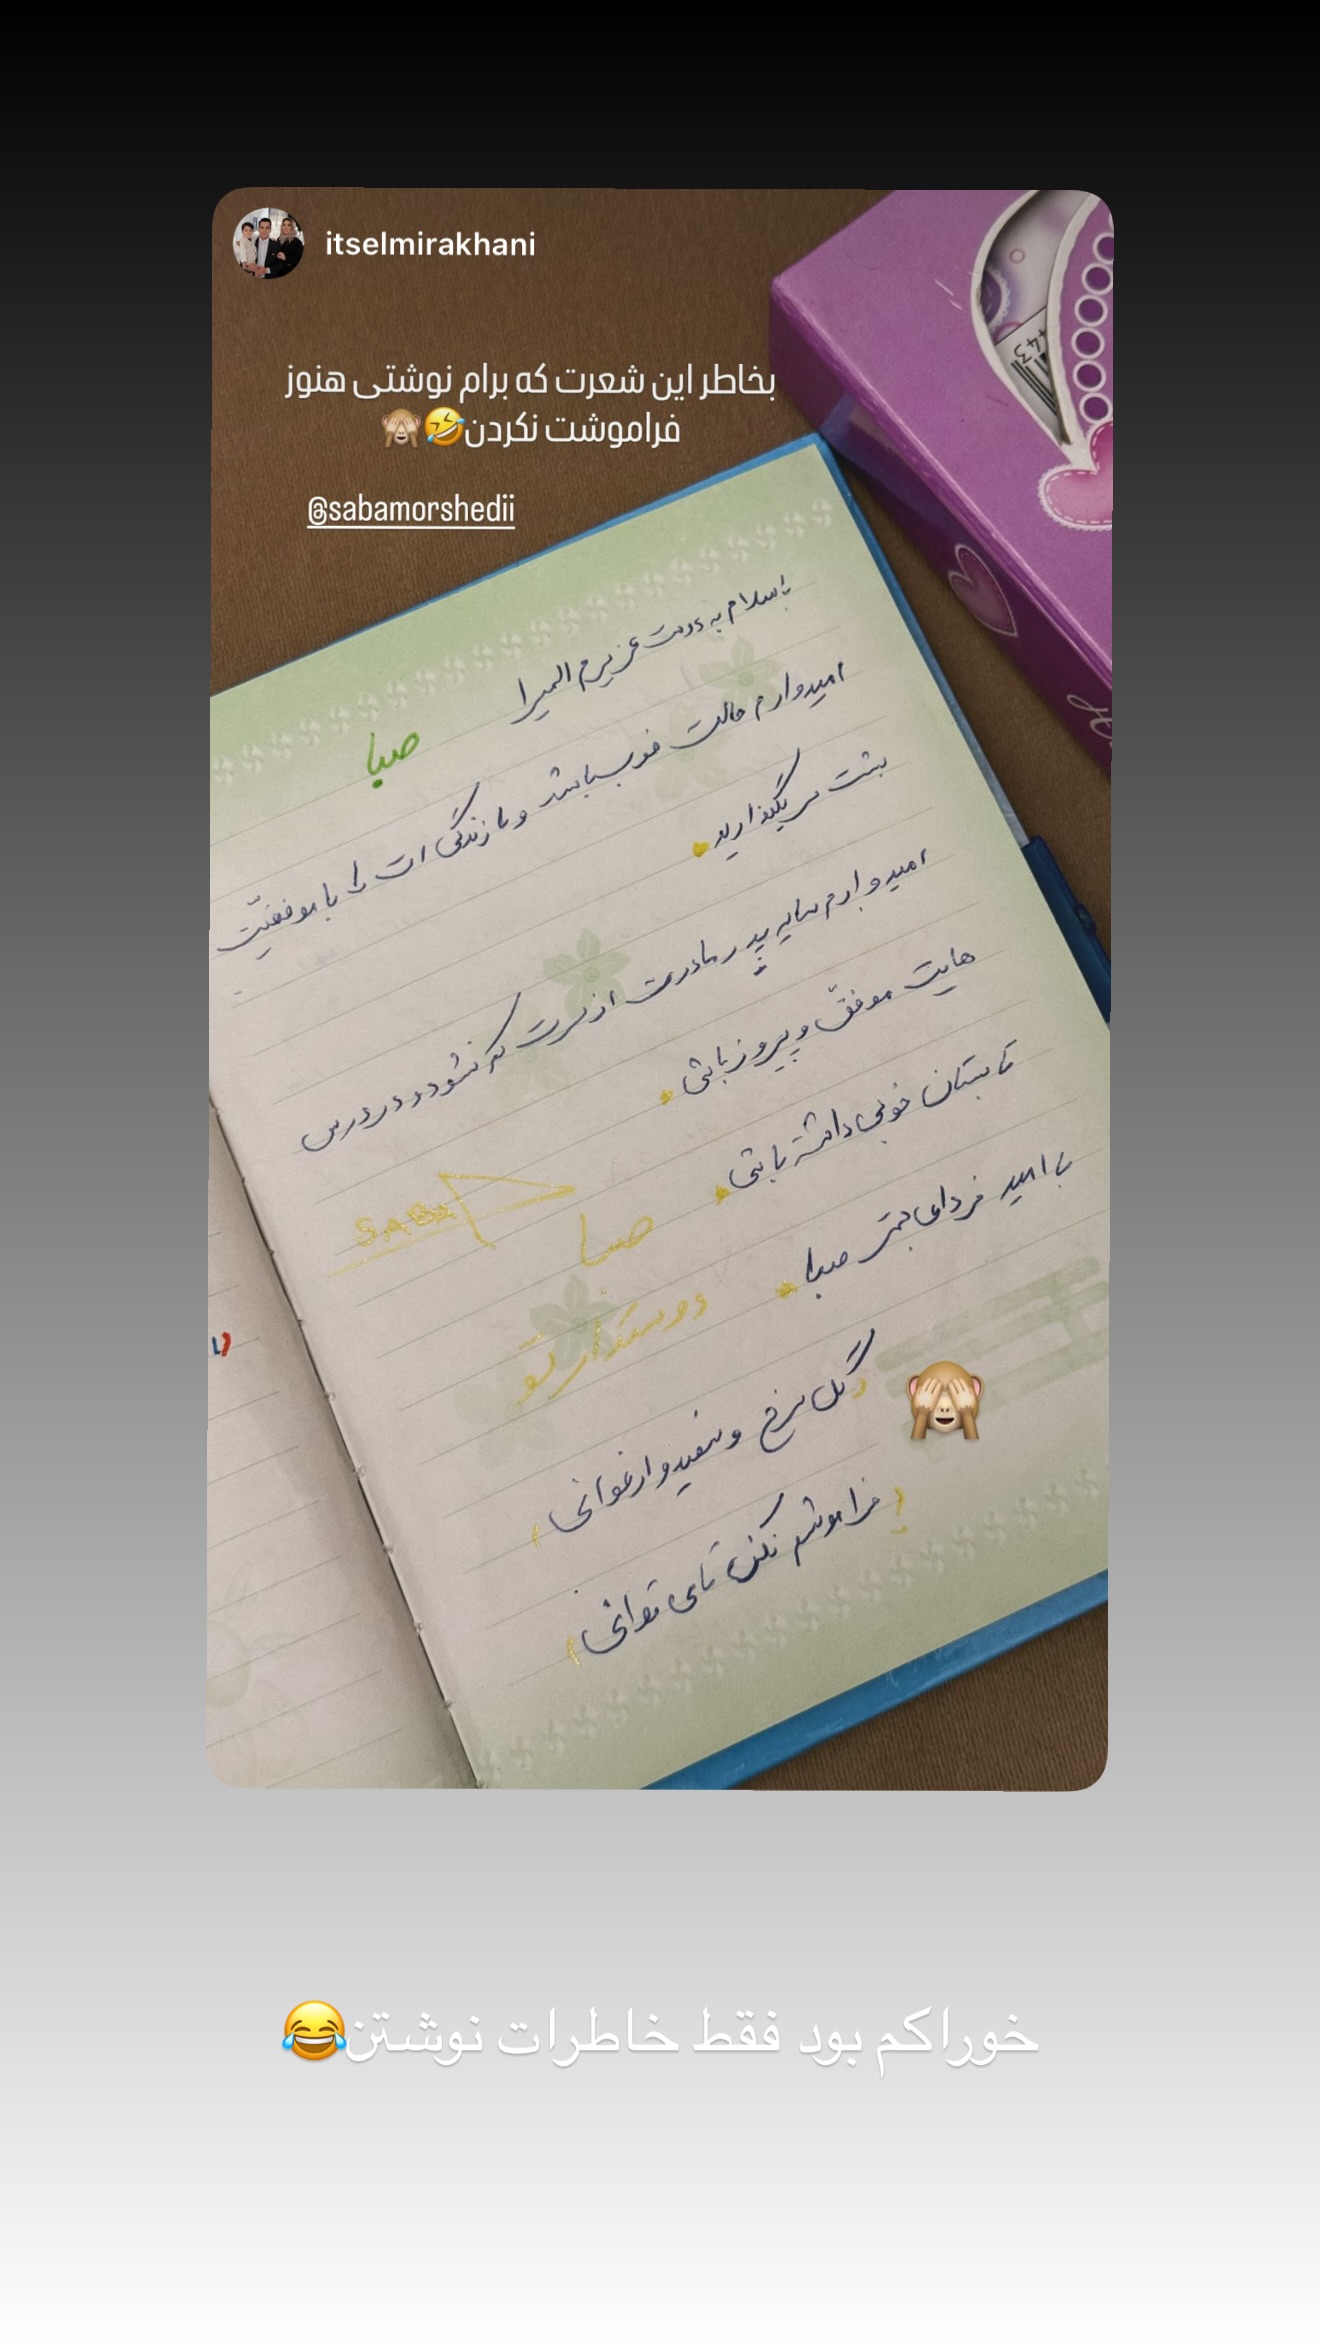 itselmirakhani
بخاطر این شعرت که برام نوشتی هنوز
فراموشت نکردن🤣🙈
@sabamorshedii
باسلام به دوست عزیزم المیرا
صبا
امیدوارم حالت خوب باشد و ما زندگی ات را با موفقیّت
پشت سر بگذارید
امیدوارم سایه پدر مادرت از سرت کم نشود و در درس
هایت موفقّ و پیروز باشی
تابستان خوبی داشته باشی
با امید فردای بهتر صبا
SABA
صبا
دوستدار تو
گل سرخ و سفید و ارغوانی
🙈
فراموشم نکن تا می توانی
خوراکم بود فقط خاطرات نوشتن😂